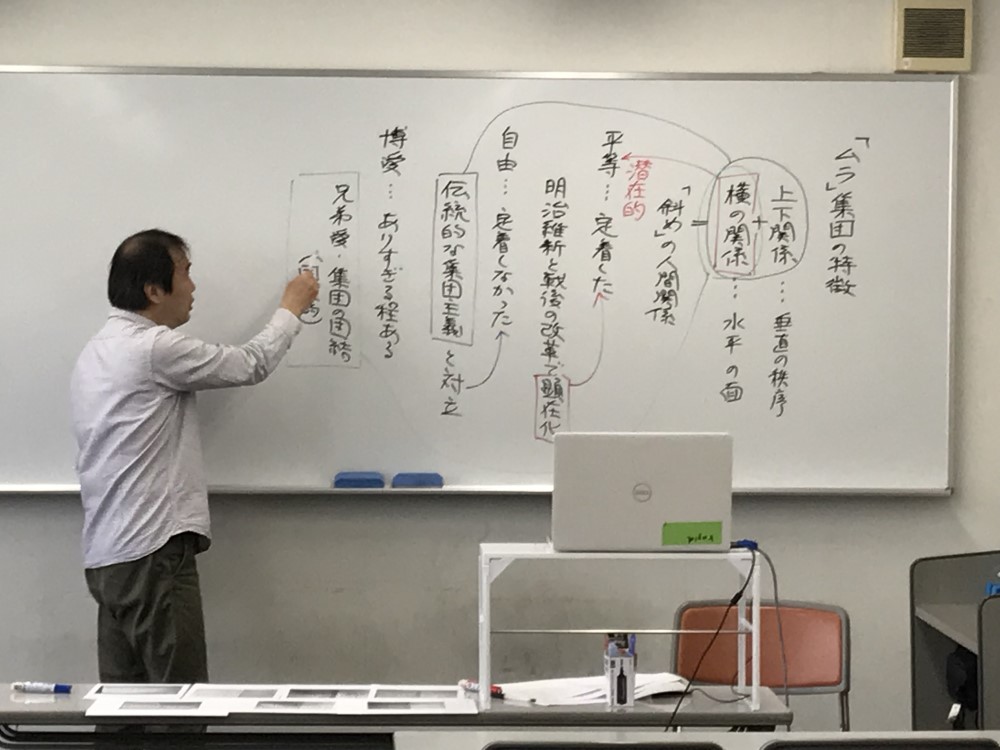 「ムラ」集団の特徴
上下関係…垂直の秩序
+
横の関係…水平の面
=
「斜め」の人間関係
潜在的
平等…定着した
明治維新と戦後の改革で顕在化
自由…定着しなかった
伝統的な集団主義と対立
博愛…ありすぎる程ある
兄弟愛・集団の団結
DELL